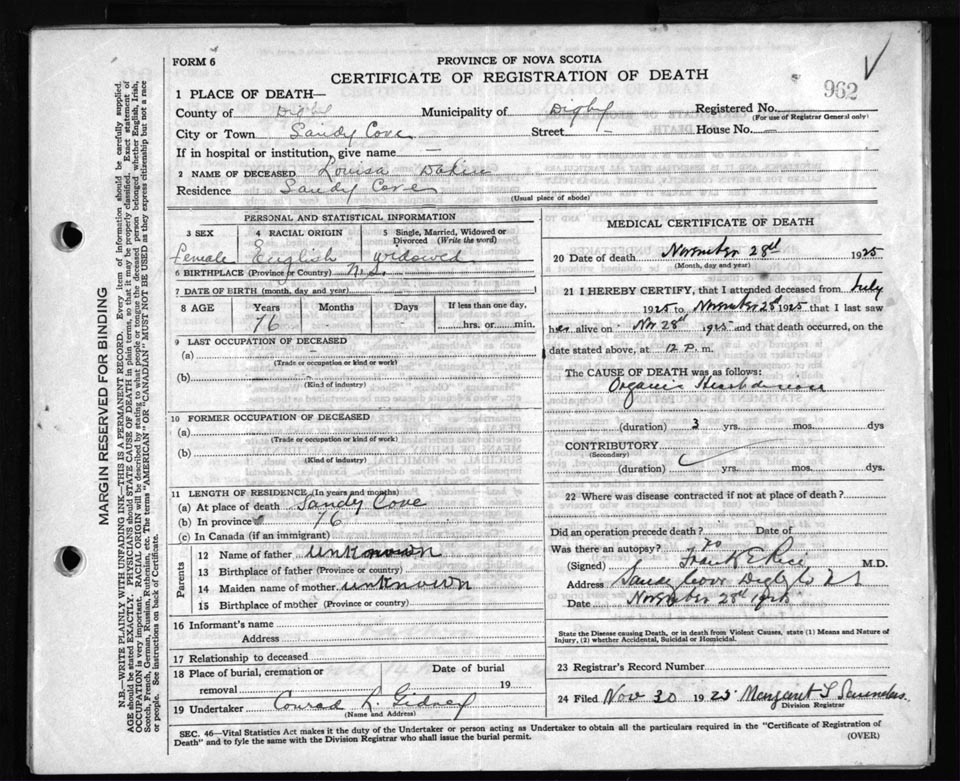 FORM 6
PROVINCE OF NOVA SCOTIA
CERTIFICATE OF REGISTRATION OF DEATH
962
1 PLACE OF DEATH—
County of Digby Municipality of Digby Registered No.
(For use of Registrar General only)
City or Town Sandy Cove Street — House No. —
If in hospital or institution, give name —
2 NAME OF DECEASED Louisa Dakin
Residence Sandy Cove
(Usual place of abode)
PERSONAL AND STATISTICAL INFORMATION
3 SEX 4 RACIAL ORIGIN 5 Single, Married, Widowed or Divorced (Write the word)
female English widowed
6 BIRTHPLACE (Province or Country) N.S.
7 DATE OF BIRTH (month, day and year)
8 AGE Years Months Days If less than one day,
76 - - hrs. or min.
9 LAST OCCUPATION OF DECEASED
(a) -
(Trade or occupation or kind or work)
(b)
(Kind of industry)
10 FORMER OCCUPATION OF DECEASED
(a)
(Trade or occupation or kind of work)
(b)
(Kind of industry)
11 LENGTH OF RESIDENCE (In years and months)
(a) At place of death Sandy Cove
(b) In province 76
(c) In Canada (if an immigrant)
Parents
12 Name of father unknown
13 Birthplace of father (Province or country)
14 Maiden name of mother unknown
15 Birthplace of mother (Province or country)
16 Informant's name
Address
17 Relationship to deceased
18 Place of burial, cremation or removal Date of burial 19
19 Undertaker Conrad L. Gidney
(Name and Address)
MEDICAL CERTIFICATE OF DEATH
20 Date of death November 28th 1925
(Month, day and year)
21 I HEREBY CERTIFY, that I attended deceased from July
1925 to November 28th 1925 that I last saw
her alive on Nov 28th 1925 and that death occurred, on the
date stated above, at 12 P. m.
The CAUSE OF DEATH was as follows:
Organic Heart disease
(duration) 3 yrs. mos. dys.
CONTRIBUTORY
(Secondary)
(duration) yrs. mos. dys.
22 Where was disease contracted if not at place of death?
Did an operation precede death? Date of
Was there an autopsy? no
(Signed) Frank E Rice M.D.
Address Sandy Cove Digby Co NS
Date November 28th 1925
State the Disease causing Death, or in death from Violent Causes, state (1) Means and Nature of
Injury, (2) whether Accidental, Suicidal or Homicidal.
23 Registrar's Record Number
24 Filed Nov 30 1925 Margaret L Saunders
Division Registrar
SEC. 46—Vital Statistics Act makes it the duty of the Undertaker or person acting as Undertaker to obtain all the particulars required in the "Certificate of Registration of
Death" and to fyle the same with the Division Registrar who shall issue the burial permit.
(OVER)
MARGIN RESERVED FOR BINDING
N.B.—WRITE PLAINLY WITH UNFADING INK—THIS IS A PERMANENT RECORD. Every item of information should be carefully supplied.
AGE should be stated EXACTLY. PHYSICIANS should STATE CAUSE OF DEATH in plain terms, so that it may be properly classified. Exact statement of
OCCUPATION is very important. RACIAL ORIGIN will be described by stating to what people or tongue the deceased person belonged whether English, Irish,
Scotch, French, German, Russian, Ruthenian, etc. The terms "AMERICAN" OR "CANADIAN" MUST NOT BE USED as they express citizenship but not a race
or people. See instructions on back of Certificate.